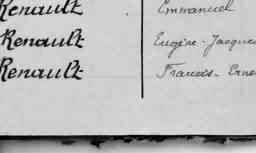 Renault Emmanuel
Renault Eugène-Jacques
Renault Francis-Ernes